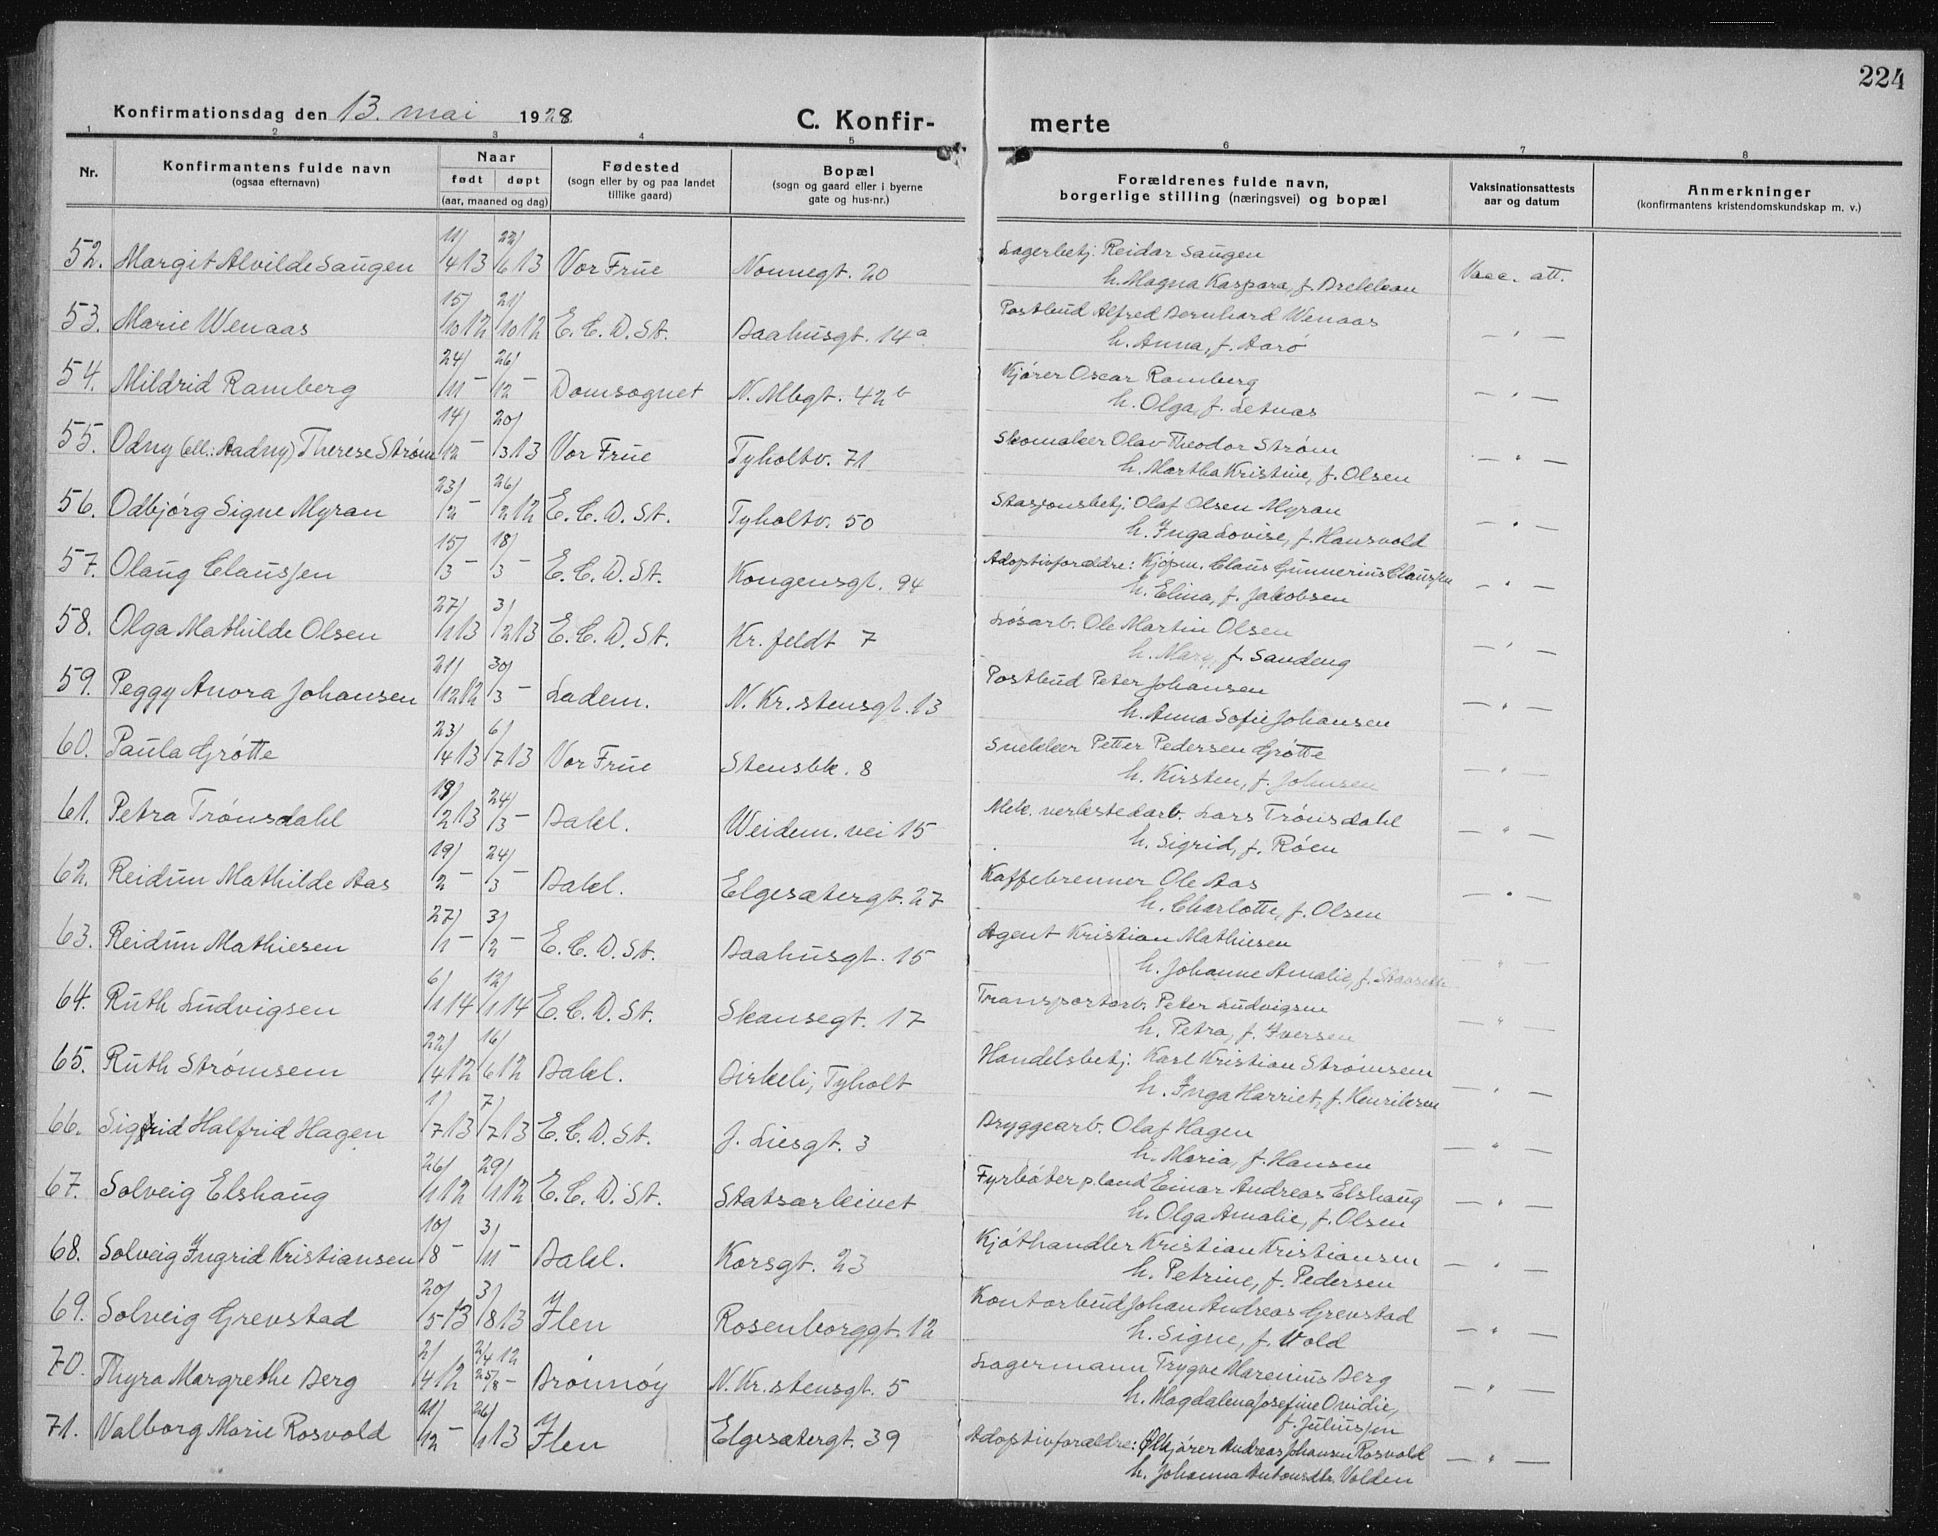 224
Konfirmationsdag den 13. mai 1928
C. Konfir-
merte
1 2 3 4 5 6 7 8
Nr.
Konfirmantens fulde navn
(ogsaa efternavn)
Naar
født døpt
(aar, maaned og dag)
Fødested
(sogn eller by og paa landet
tillike gaard)
Bopæl
(sogn og gaard eller i byerne
gate og hus-nr.)
Forældrenes fulde navn,
borgerlige stilling (næringsvei) og bopæl
Vaksinationsattests
aar og datum
Anmerkninger
(konfirmantens kristendomskundskap m. v.)
52. Margit Alvilde Saugen 11/4 13 22/6 13 Vor Frue Nonnegt. 20 Lagerbetj. Reidar Saugen Vacc. att.
h. Magna Kaspara, f. Brekkan
53. Marie Wenaas 15/10 12 21/10 12 E. C. D. St. Baahusgt. 14a Postbud Alfred Bernhard Wenaas — " —
h. Anna, f. Aarø
54. Mildrid Ramberg 24/11 — 26/12 — Domsognet N. Mbgt. 42b Kjører Oscar Ramberg — " —
h. Olga, f. Letnas
55. Odny (ell: Aadny) Therese Strøm 14/12 — 20/3 13 Vor Frue Tyholtv. 71 Skomaker Olav Theodor Strøm — " —
h. Martha Kristine, f. Olsen
56. Odbjørg Signe Myran 23/2 — 26/2 12 E. C. D. St. Tyholtv. 50 Stasjonsbetj. Olaf Olsen Myran — " —
h. Inga Lovise, f. Hansvold
57. Olaug Claussen 15/3 — 18/3 — E. C. D. St. Kongensgt. 94 Adoptivforældre: Kjøpm. Claus Gunnerius Claussen — " —
h. Elina, f. Jakobsen
58. Olga Mathilde Olsen 27/1 13 3/2 13 E. C. D. St. Kr. feldt 7 Løsarb. Ole Martin Olsen — " —
h. Mary, f. Sandeng
59. Peggy Anora Johansen 21/12 12 30/3 — Ladem. N. Kr. stensgt. 13 Postbud Peter Johansen — " —
h. Anna Sofie Johansen
60. Paula Grøtte 23/4 13 6/7 13 Vor Frue Stensbk. 8 Snekker Petter Pedersen Grøtte — " —
h. Kirsten, f. Johnsen
61. Petra Trønsdahl /2 13 24/3 — Bakl. Weidem. vei 15 Mek. verkstedarb. Lars Trønsdahl — " —
h. Sigrid, f. Røen
62. Reidun Mathilde Aas 19/2 — 24/3 — Bakl. Elgesætergt. 27 Kaffebrenner Ole Aas — " —
h. Charlotte, f. Olsen
63. Reidun Mathiesen 27/1 — 3/2 — E. C. D. St. Baahusgt. 15 Agent Kristian Mathiesen — " —
h. Johanne Amalie, f.
64. Ruth Ludvigsen 6/1 14 12/1 14 E. C. D. St. Skansegt. 17 Transportarb. Peter Ludvigsen — " —
h. Petra, f. Iversen
65. Ruth Strømsem 22/4 12 16/6 12 Bakl. Birkeli, Tyholt Handelsbetj. Karl Kristian Strømsem — " —
h. Inga Harriet, f. Henriksen
66. Sigrid Halfrid Hagen 1/7 13 7/7 13 E. C. D. St. J. Liesgt. 3 Bryggearb. Olaf Hagen — " —
h. Maria, f. Hansen
67. Solveig Elshaug 26/1 12 29/1 12 E. C. D. St. Statsarkivet Fyrbøter p. land Einar Andreas Elshaug — " —
h. Olga Amalie, f. Olsen
68. Solveig Ingrid Kristiansen 10/8 — 3/11 — Bakl. Korsgt. 23 Kjøthandler Kristian Kristiansen — " —
h. Petrine, f. Pedersen
69. Solveig Grevstad 20/5 13 3/8 13 Ilen Rosenborggt. 12 Kontorbud Johan Andreas Grevstad — " —
h. Signe, f. Wold
70. Thyra Margrethe Berg 2/4 12 2/4 12 25/8 — Brønnøy N. Kr. stensgt. 5 Lagermann Trygve Marenius Berg — " —
h. Magdalena Josefine Ovidie,
f. Juliussen
71. Valborg Marie Rosvold 21/12 — 26/1 13 Ilen Elgesætergt. 39 Adoptivforældre: Ølkjører Andreas Johansen Rosvold — " —
h. Johanna Antonsdtr. Volden